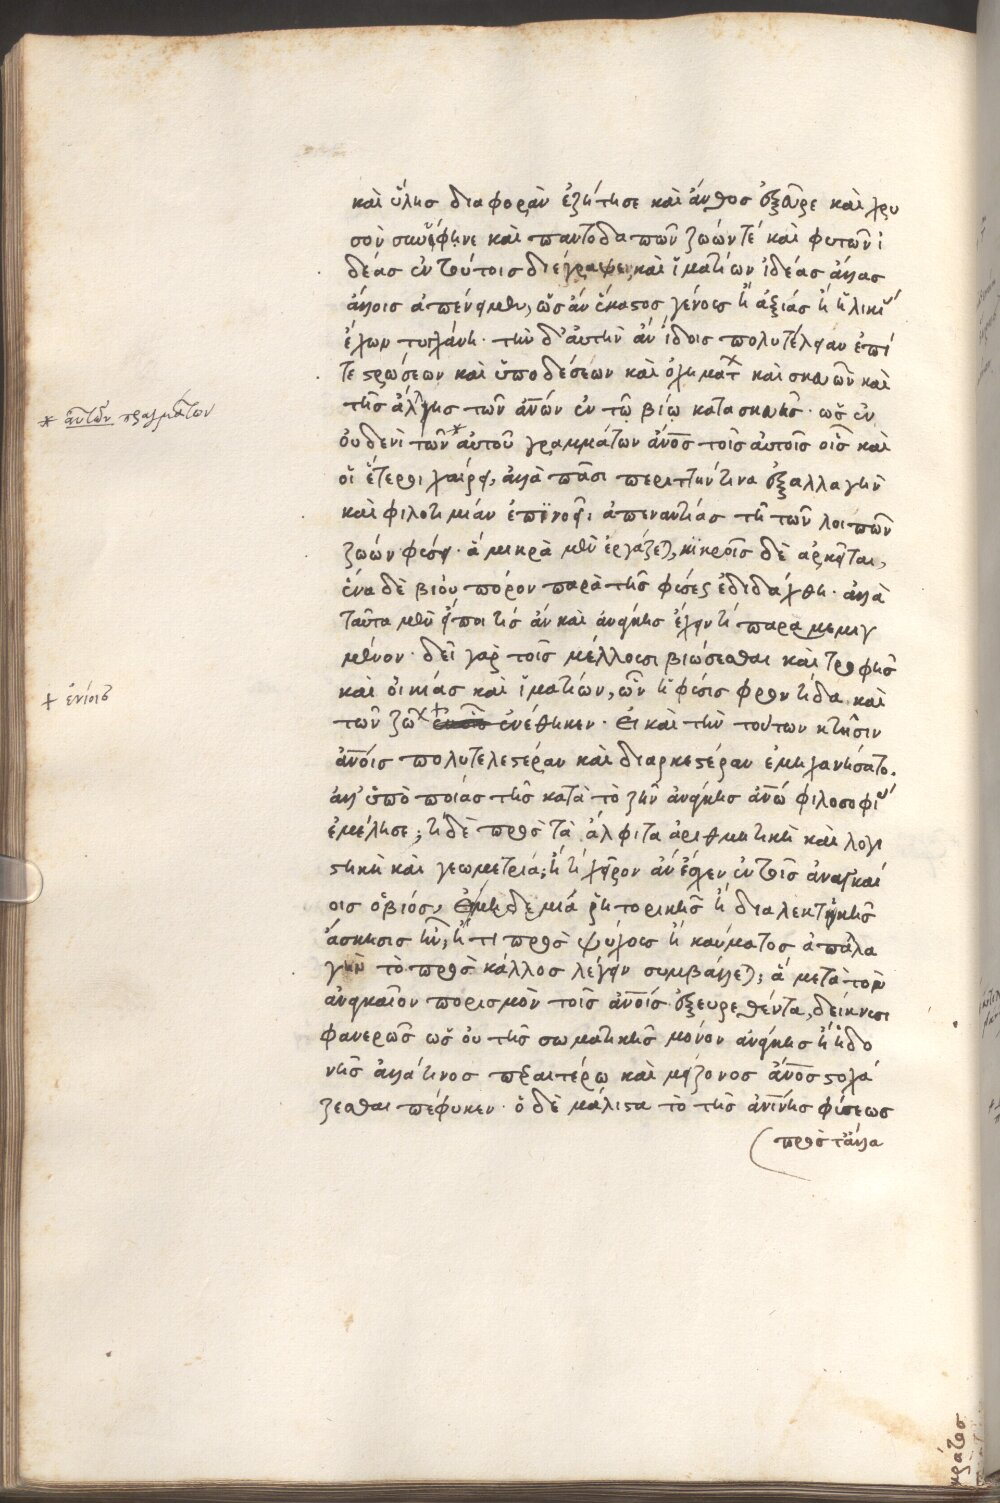 καὶ ὕλης διαφορὰν ἐζήτησε καὶ ἄνθος ἐξεῦρε καὶ χρυ
σὸν συνύφηνε καὶ παντοδαπῶν ζώων τέ καὶ φυτῶν ἰ
δέας ἐν τούτοις διέγραψεν, καὶ ἱματίων ἰδέας ἄλλας
ἄλλοις ἀπένειμεν, ὡς ἂν ἕκαστος γένους ἢ ἀξίας ἢ ἡλικίας
ἔχων τυγχάνῃ. τὴν δ' αὐτὴν ἂν ἴδοις πολυτέλειαν ἐπί
τε στρώσεων καὶ ὑποδέσεων καὶ ὀχημάτ καὶ σκευῶν καὶ
τῆς ἄλλης τῶν ἀνῶν ἐν τῷ βίω κατασκευῆς. ὡς ἐν
οὐδενὶ τῶν * αὐτοῦ γραμμάτων ἄνος τοῖς αὐτοῖς οἷς καὶ
οἱ ἕτεροι χαίρει, ἀλλὰ πᾶσι περιττήν τινα ἐξαλλαγὴν
καὶ φιλοτιμίαν ἐπινοεῖ, ἀπεναντίας τῆ τῶν λοιπῶν
ζώων φύσει. ἃ μικρὰ μὲν ἐργάζεται, μικροῖς δὲ ἀρκεῖται,
ἕνα δὲ βίου πόρον παρὰ τῆς φύσεως ἐδιδάχθη. ἀλλὰ
ταῦτα μὲν εἴποι τίς ἂν καὶ ἀνάγκης ἔχειν τί παραμεμιγ
μένον. δεῖ γὰρ τοῖς μέλλουσι βιώσεσθαι καὶ τροφῆς
καὶ οἰκίας καὶ ἱματίων, ὧν ἡ φύσις φροντίδα καὶ
τῶν ζω + ἐνέθηκεν. εἰ καὶ τὴν τούτων κτῆσιν
ἀνοις πολυτελεστέραν καὶ διαρκεστέραν ἐμηχανήσατο.
ἀλλ' ὑπὸ ποίας τῆς κατὰ τὸ ζῆν ἀνάγκης ἀνω φιλοσοφίας
ἐμέλησε; τί δὲ πρὸς τὰ ἄλφιτα ἀριθμητικὴ καὶ λογι
στικὴ καὶ γεωμετρία; ἢ τί χεῖρον ἂν ἔσχεν ἐν τοῖς ἀναγκαί
οις ὁ βίος, εἰ μηδεμία ῥητορικῆς ἢ διαλεκτικῆς
ἄσκησις ἦν; ἢ τι πρὸς ψύχους ἢ καύματος ἀπαλλα
γὴν τὸ πρὸς κάλλος λέγειν συμβάλλεται; ἃ μετὰ τὸν
ἀναγκαῖον πορισμὸν τοῖς ἀνοις ἐξευρεθέντα, δείκνυσι
φανερῶς ὡς οὐ τῆς σωματικῆς μόνον ἀνάγκης ἢ ἡδο
νῆς ἀλλά τινος περαιτέρω καὶ μείζονος ἄνος στοχά
ζεσθαι πέφυκεν. ὃ δὲ μάλιστα τὸ τῆς ἀνίνης φύσεως
πρὸς τἄλλα
* αὐτῶν πραγμάτων
+ ἐνίοις